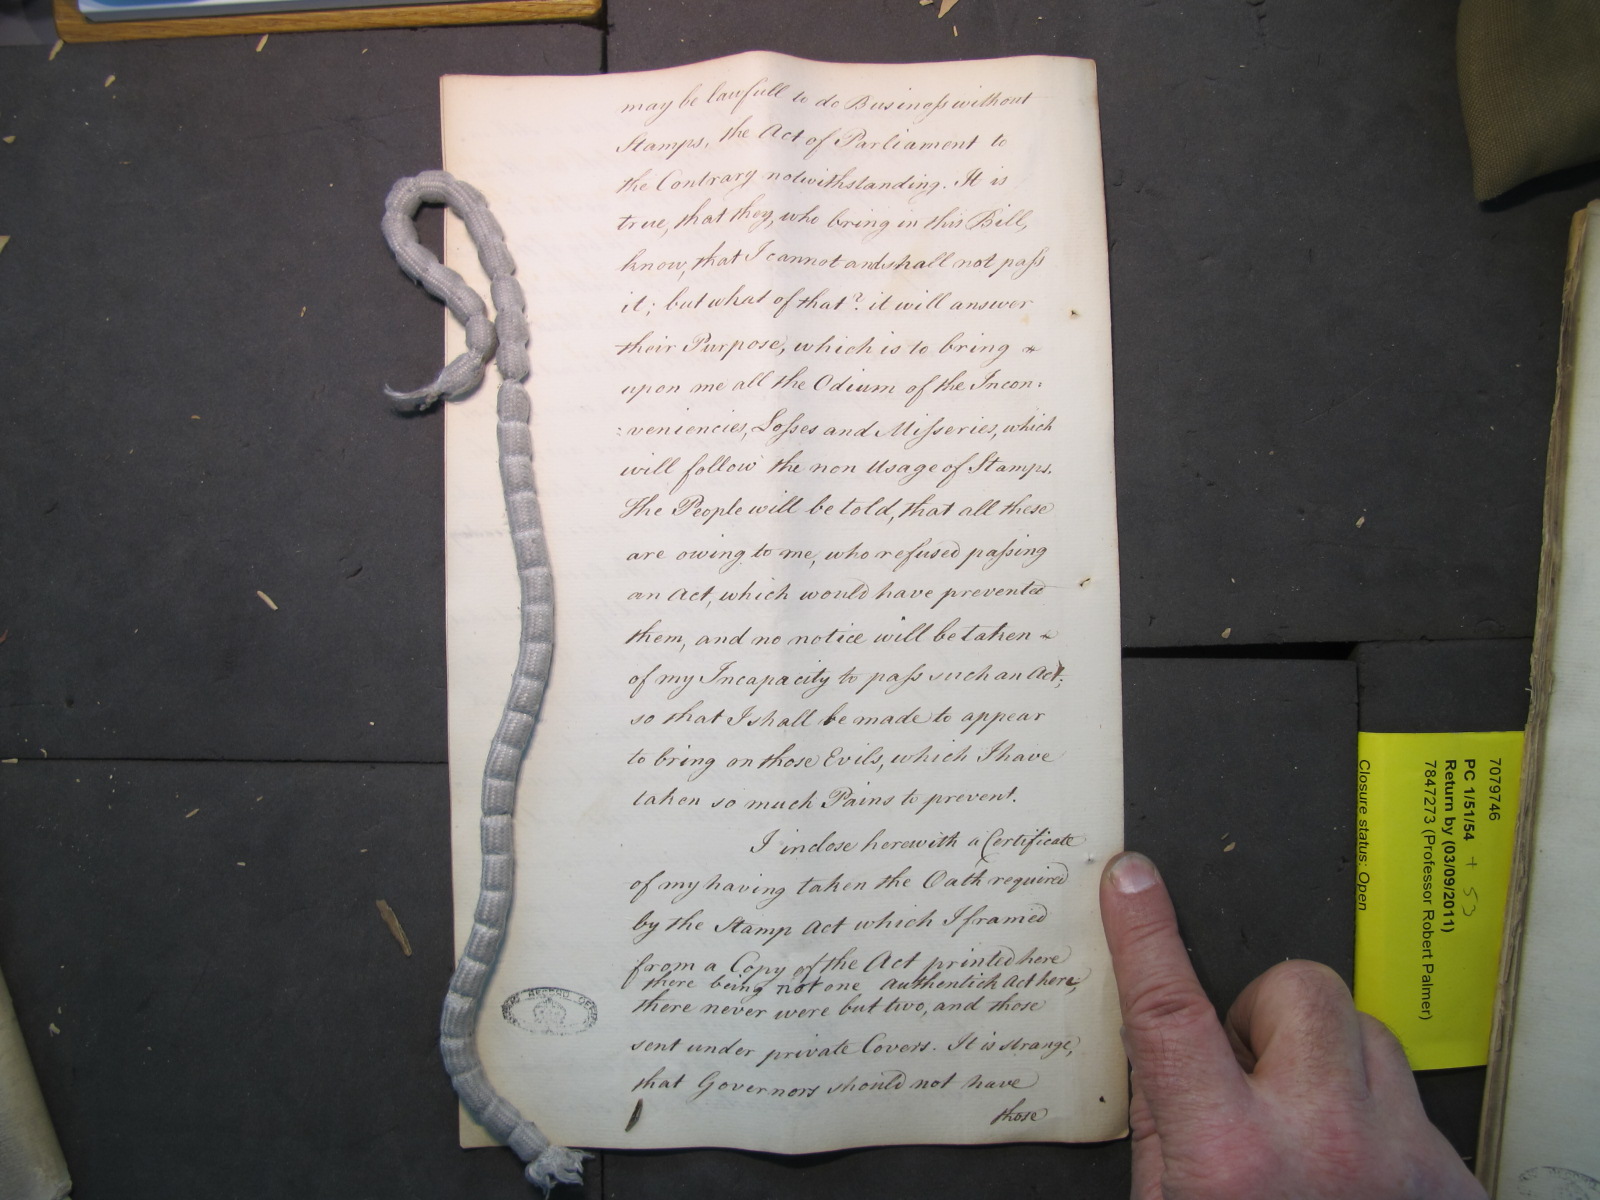 may be lawfull to do Business without
Stamps, the Act of Parliament to
the Contrary notwithstanding. It is
true, that they, who bring in this Bill,
know, that I cannot and shall not pass
it; but what of that? it will answer
their Purpose, which is to bring
upon me all the Odium of the Incon:
:veniencies, Losses and Misseries, which
will follow the non Usage of Stamps.
The People will be told, that all these
are owing to me, who refused passing
an Act, which would have prevented
them, and no notice will be taken
of my Incapacity to pass such an Act;
so that I shall be made to appear
to bring on those Evils, which I have
taken so much Pains to prevent.
I inclose herewith a Certificate
of my having taken the Oath required
by the Stamp Act which I framed
from a Copy of the Act printed here
there being not one authentick Act here,
there never were but two, and those
sent under private Covers. It is strange,
that Governors should not have
those
7079746
PC 1/51/54 + 53
Return by (03/09/2011)
7847273 (Professor Robert Palmer)
Closure status: Open